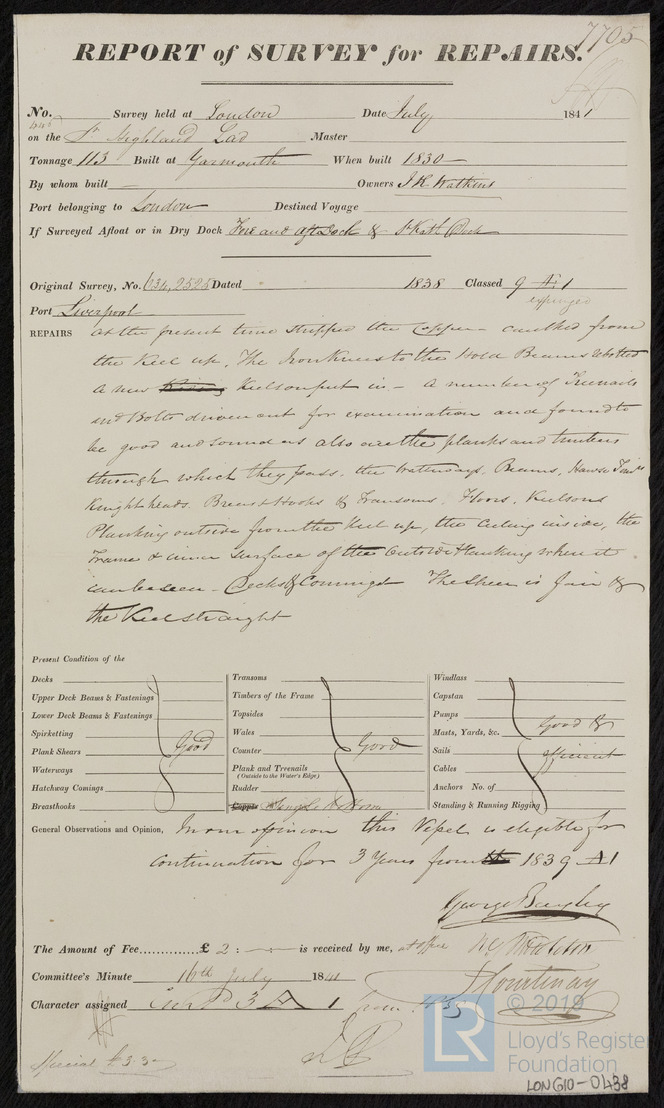 7705
REPORT of SURVEY for REPAIRS.
No. Survey held at London Date July 1841
on the Sr Highland Lad Master
Tonnage 113 Built at Yarmouth When built 1830
By whom built — Owners J R Watkins
Port belonging to London Destined Voyage
If Surveyed Afloat or in Dry Dock Fore and Aft Dock & St Kath Dock
Original Survey, No. 2525 Dated 1838 Classed 9 A 1
expunged
Port Liverpool
REPAIRS at the present time stripped the Copper – caulked from
the Keel up. The Iron Knees to the Hold Beams rebolted
a new Keelson put in. – A number of Treenails
and Bolts driven out for examination and found to
be good and sound as also are the planks and timbers
through which they pass. the Waterways, Beams, Hawse Timbrs
Knightheads. Breast Hooks & Transoms. Floors. Keelsons
Planking outside from the Keel up, the Ceiling inside, the
Frame & inner surface of the Outside Planking where it
can be seen – Decks & Comings The Sheer is fair &
the Keel straight
Present Condition of the
Decks
Upper Deck Beams & Fastenings
Lower Deck Beams & Fastenings
Spirketting
Plank Shears Good
Waterways
Hatchway Comings
Breasthooks
Transoms
Timbers of the Frame
Topsides
Wales
Counter Good
Plank and Treenails
(Outside to the Water's Edge)
Rudder
Copper
Windlass
Capstan
Pumps Good &
Masts, Yards, &c.
Sails efficient
Cables
Anchors No. of
Standing & Running Rigging
General Observations and Opinion, In our opinion this Vessel is eligible for
continuation for 3 Years from 1839 A 1
George Bayley
The Amount of Fee..............£ 2 : – – is received by me, at office
Courtenay
Committee's Minute 16th July 1841
Character assigned 3 A 1 from
Special £3.3
© 2019
LR
Lloyd's Register
Foundation
LON610-0438